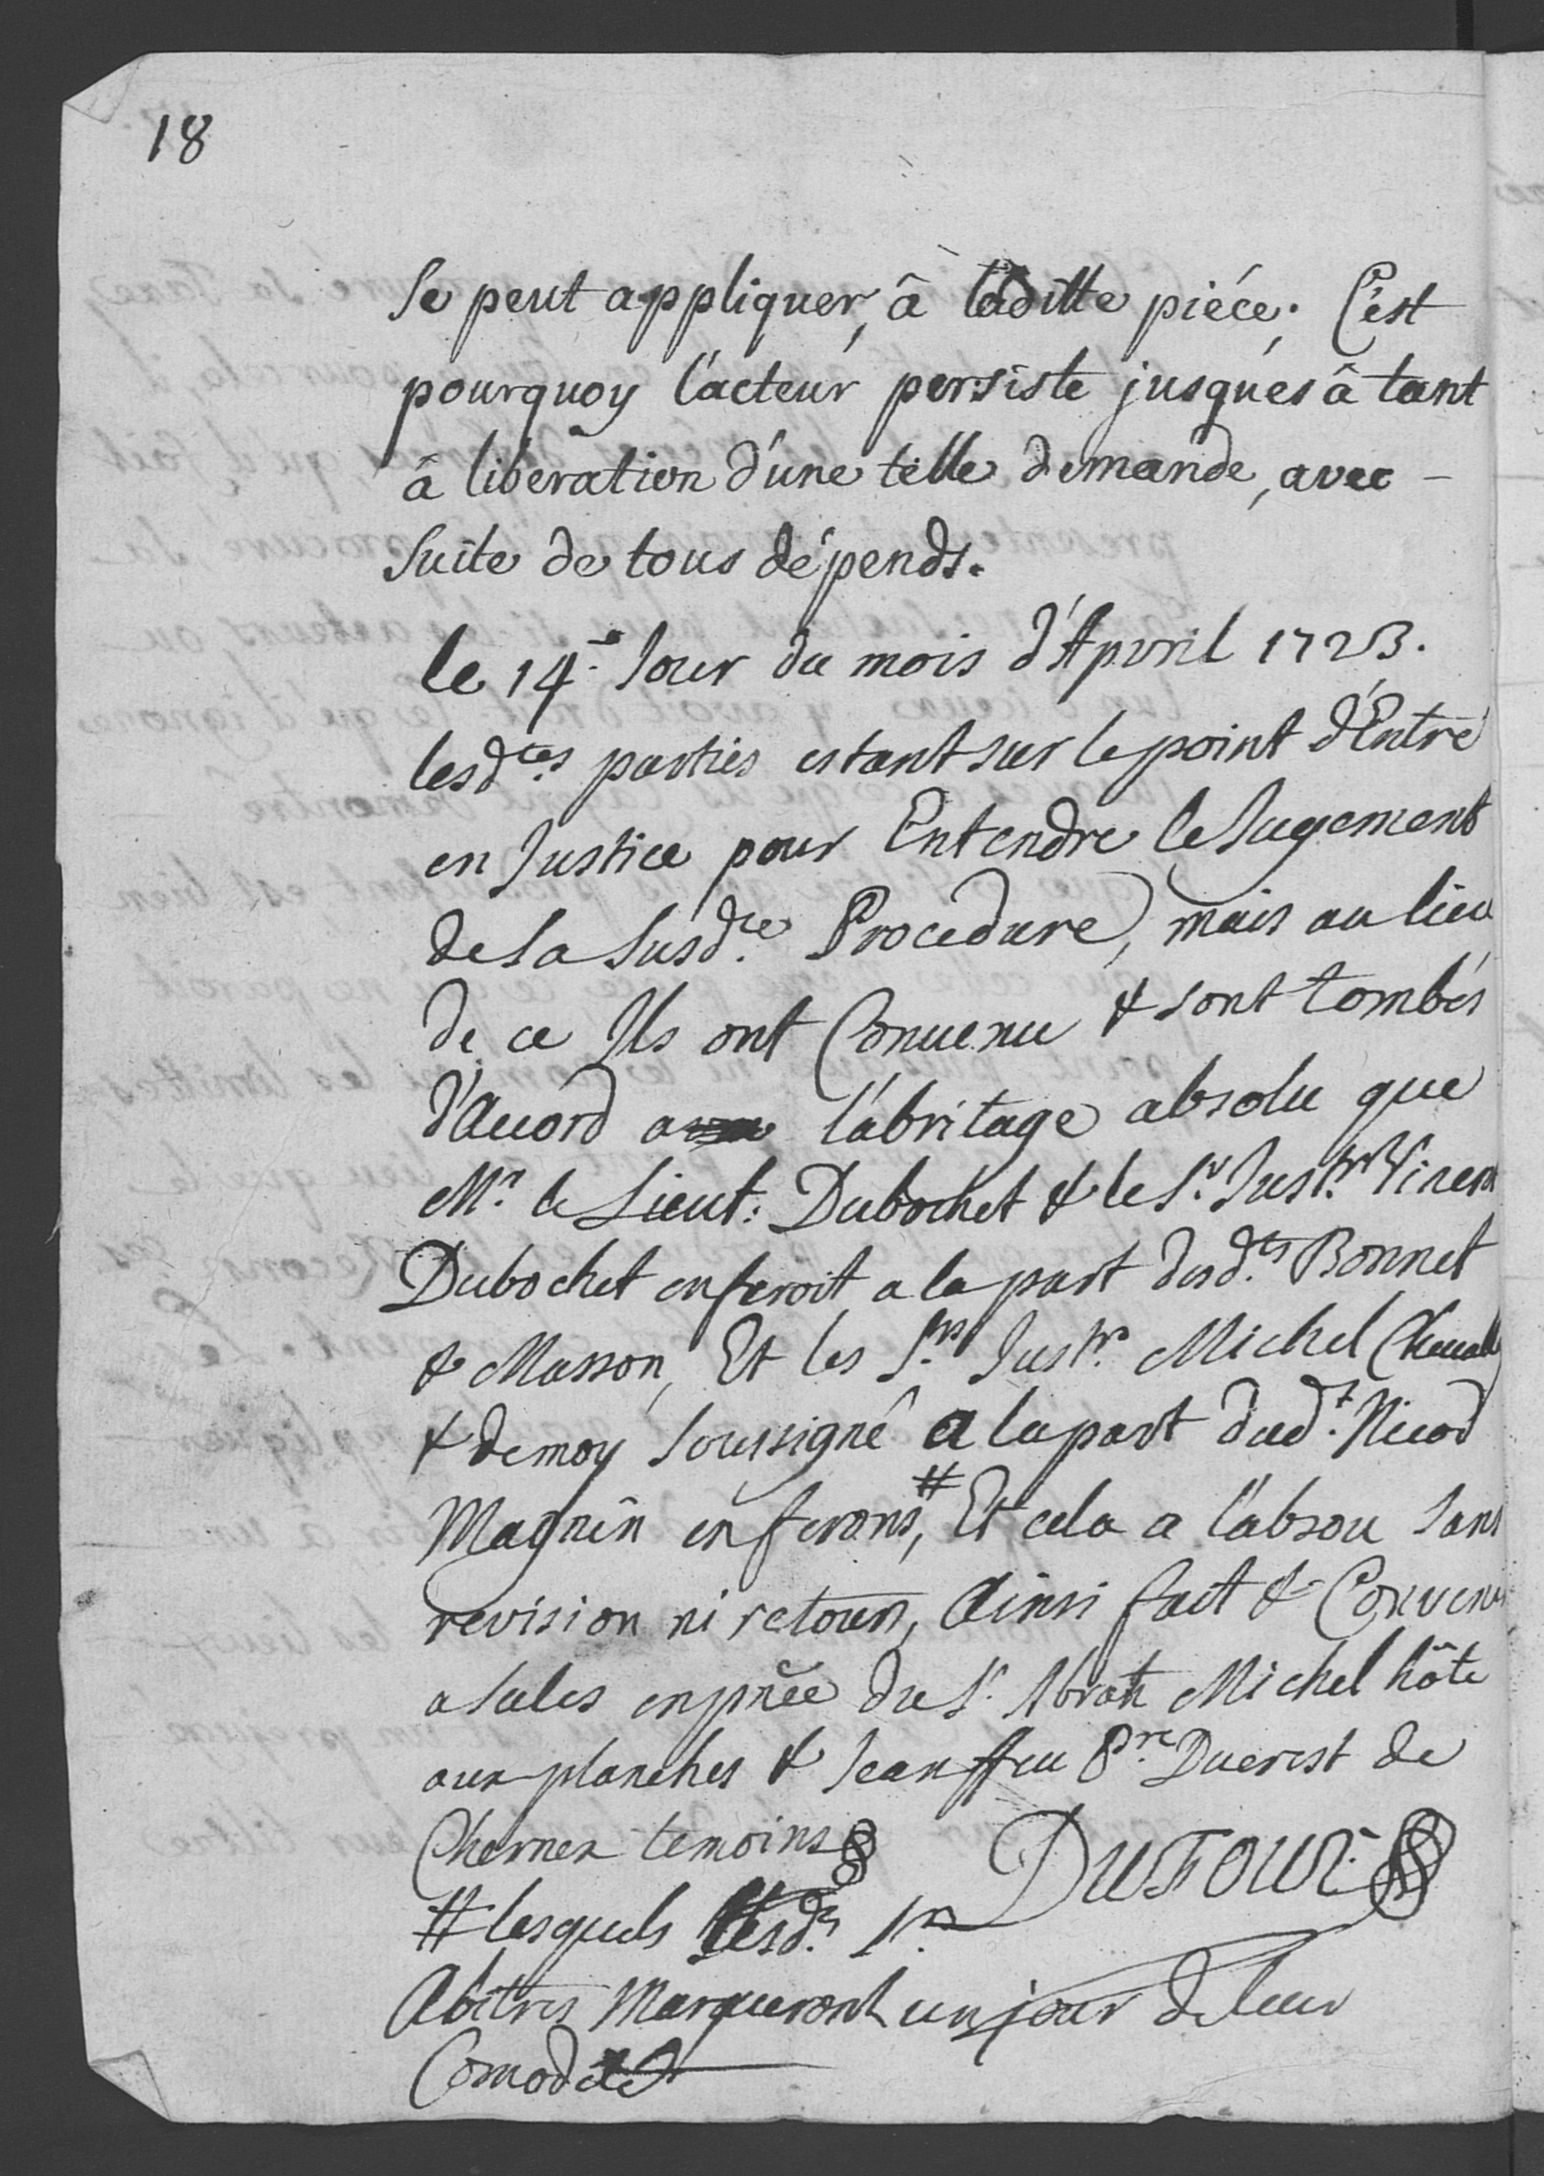 18
Se peut appliquer, â laditte piéce. C'est
pourquoy l'acteur persiste jusques â tant
â liberation d'une telle demande, avec -
Suite de tous dépends.
le 14.e Jour du mois d'Apvril 1723.
lesd.tes parties estant sur le point d'Entré
en Justice pour Entendre le Jugement
de la Susd.te Procedure, mais au lieu
de ce Ils ont Convenu & sont tombés
d'Accord a l'abritage absolu que
M.r le Lieut: Dubochet & le S.r Just.r Vincen
Dubochet en feroit a la part desd.ts Bonnet
& Masson, Et les S.rs Just.rs Michel
& de moy soussigné a la part dud.t Nicod
Magnin en ferons, # Et cela a l'absou sans
revision ni retour, Ainsi fait & Conven
a Sales en pñce du S.r Abrah Michel hôte
aux planches & Jean ffeu P.re Ducrest de
Chernex temoins
DUFOUR
# lesquels lesd.ts S.rs
Abitres Marqueront un jour de leur
Comodité